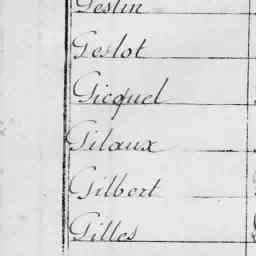 Geslin
Geslot
Gicquel
Gilaux
Gilbert
Gilles